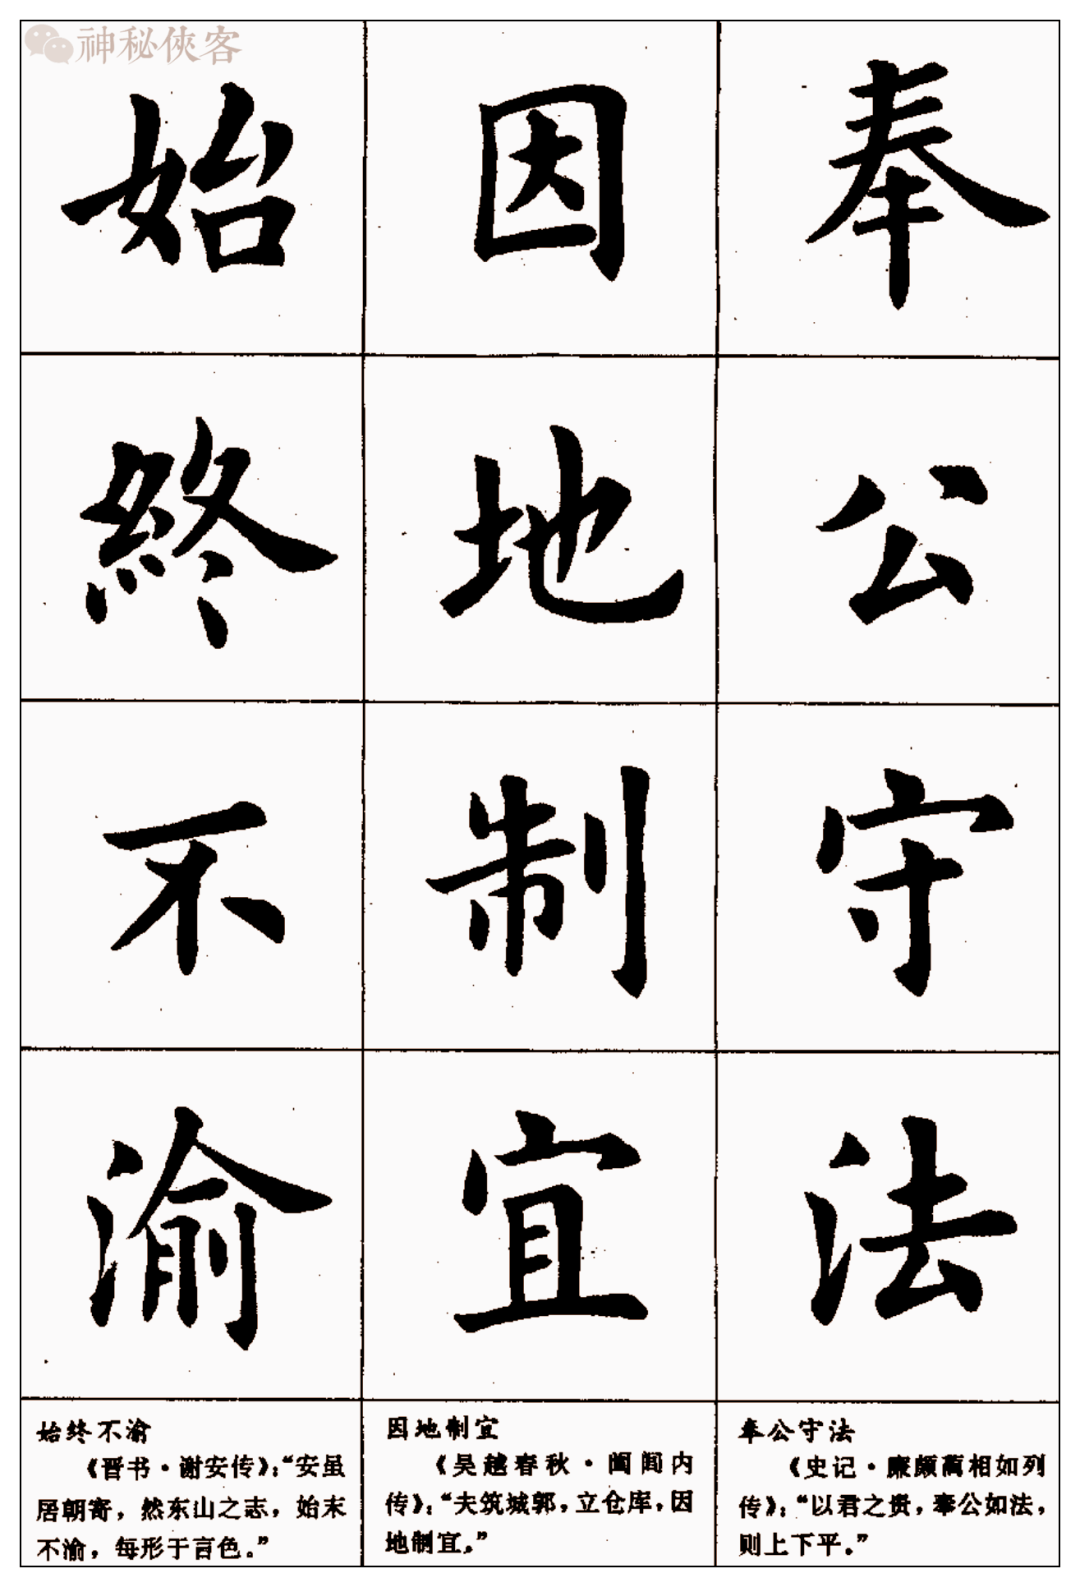 神秘侠客
奉公守法
因地制宜
始終不渝
奉公守法
《史记·廉颇蔺相如列
传》：“以君之贵，奉公如法，
则上下平。”
因地制宜
《吴越春秋·阖闾内
传》：“夫筑城郭，立仓库，因
地制宜。”
始终不渝
《晋书·谢安传》：“安虽
居朝寄，然东山之志，始末
不渝，每形于言色。”